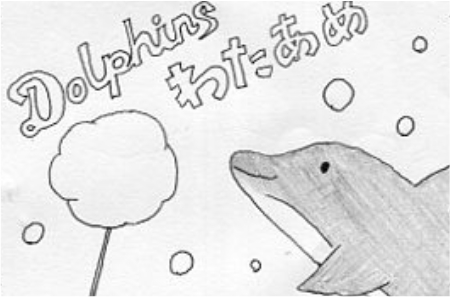 Dolphins
わたあめ